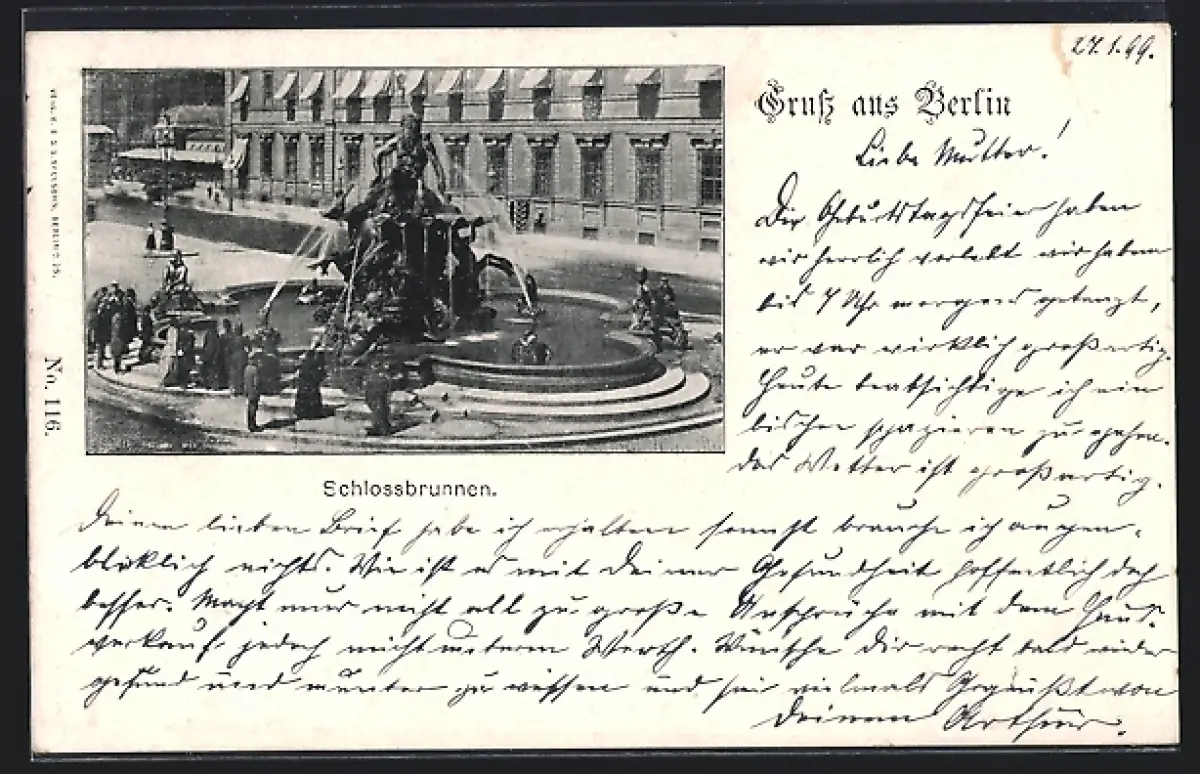 27.1.99.
Gruß aus Berlin
Liebe Mutter!
Die Geburtstagsfeier haben
wir herrlich verlebt wir haben
bis 7 Uhr morgens getanzt,
es war wirklich großartig.
Heute beabsichtige ich ein
bischen spazieren zu gehen.
das Wetter ist großartig.
No. 116.
Schlossbrunnen.
Deinen lieben Brief habe ich erhalten sonnst brauche ich augen-
bliklich nichts. Wie ist es mit Deiner Gesundheit hoffentlich doch
besser. Macht nur nicht all zu große Ansprüche mit dem Haus-
verkauf jedoch nicht unterm Werth. Wünsche Dir recht bald wieder
gesund und munter zu wissen und sei vielmals Gegrüßt von
Deinem Arthur.